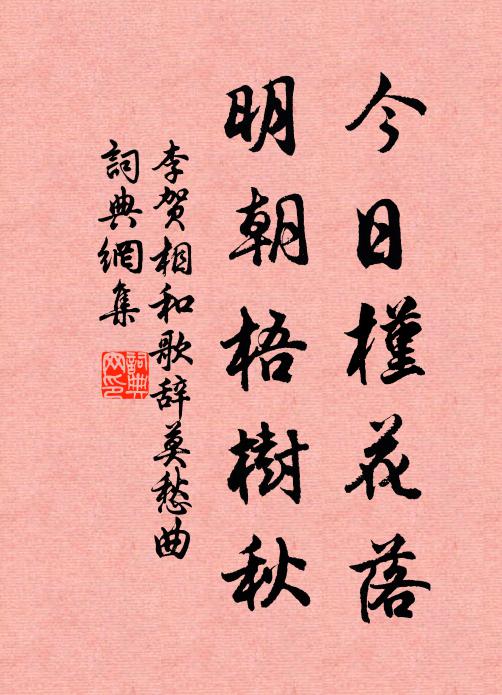 今日槿花落
明朝梧樹秋
李賀相和歌辞莫愁曲
詞典網集
詞典網印